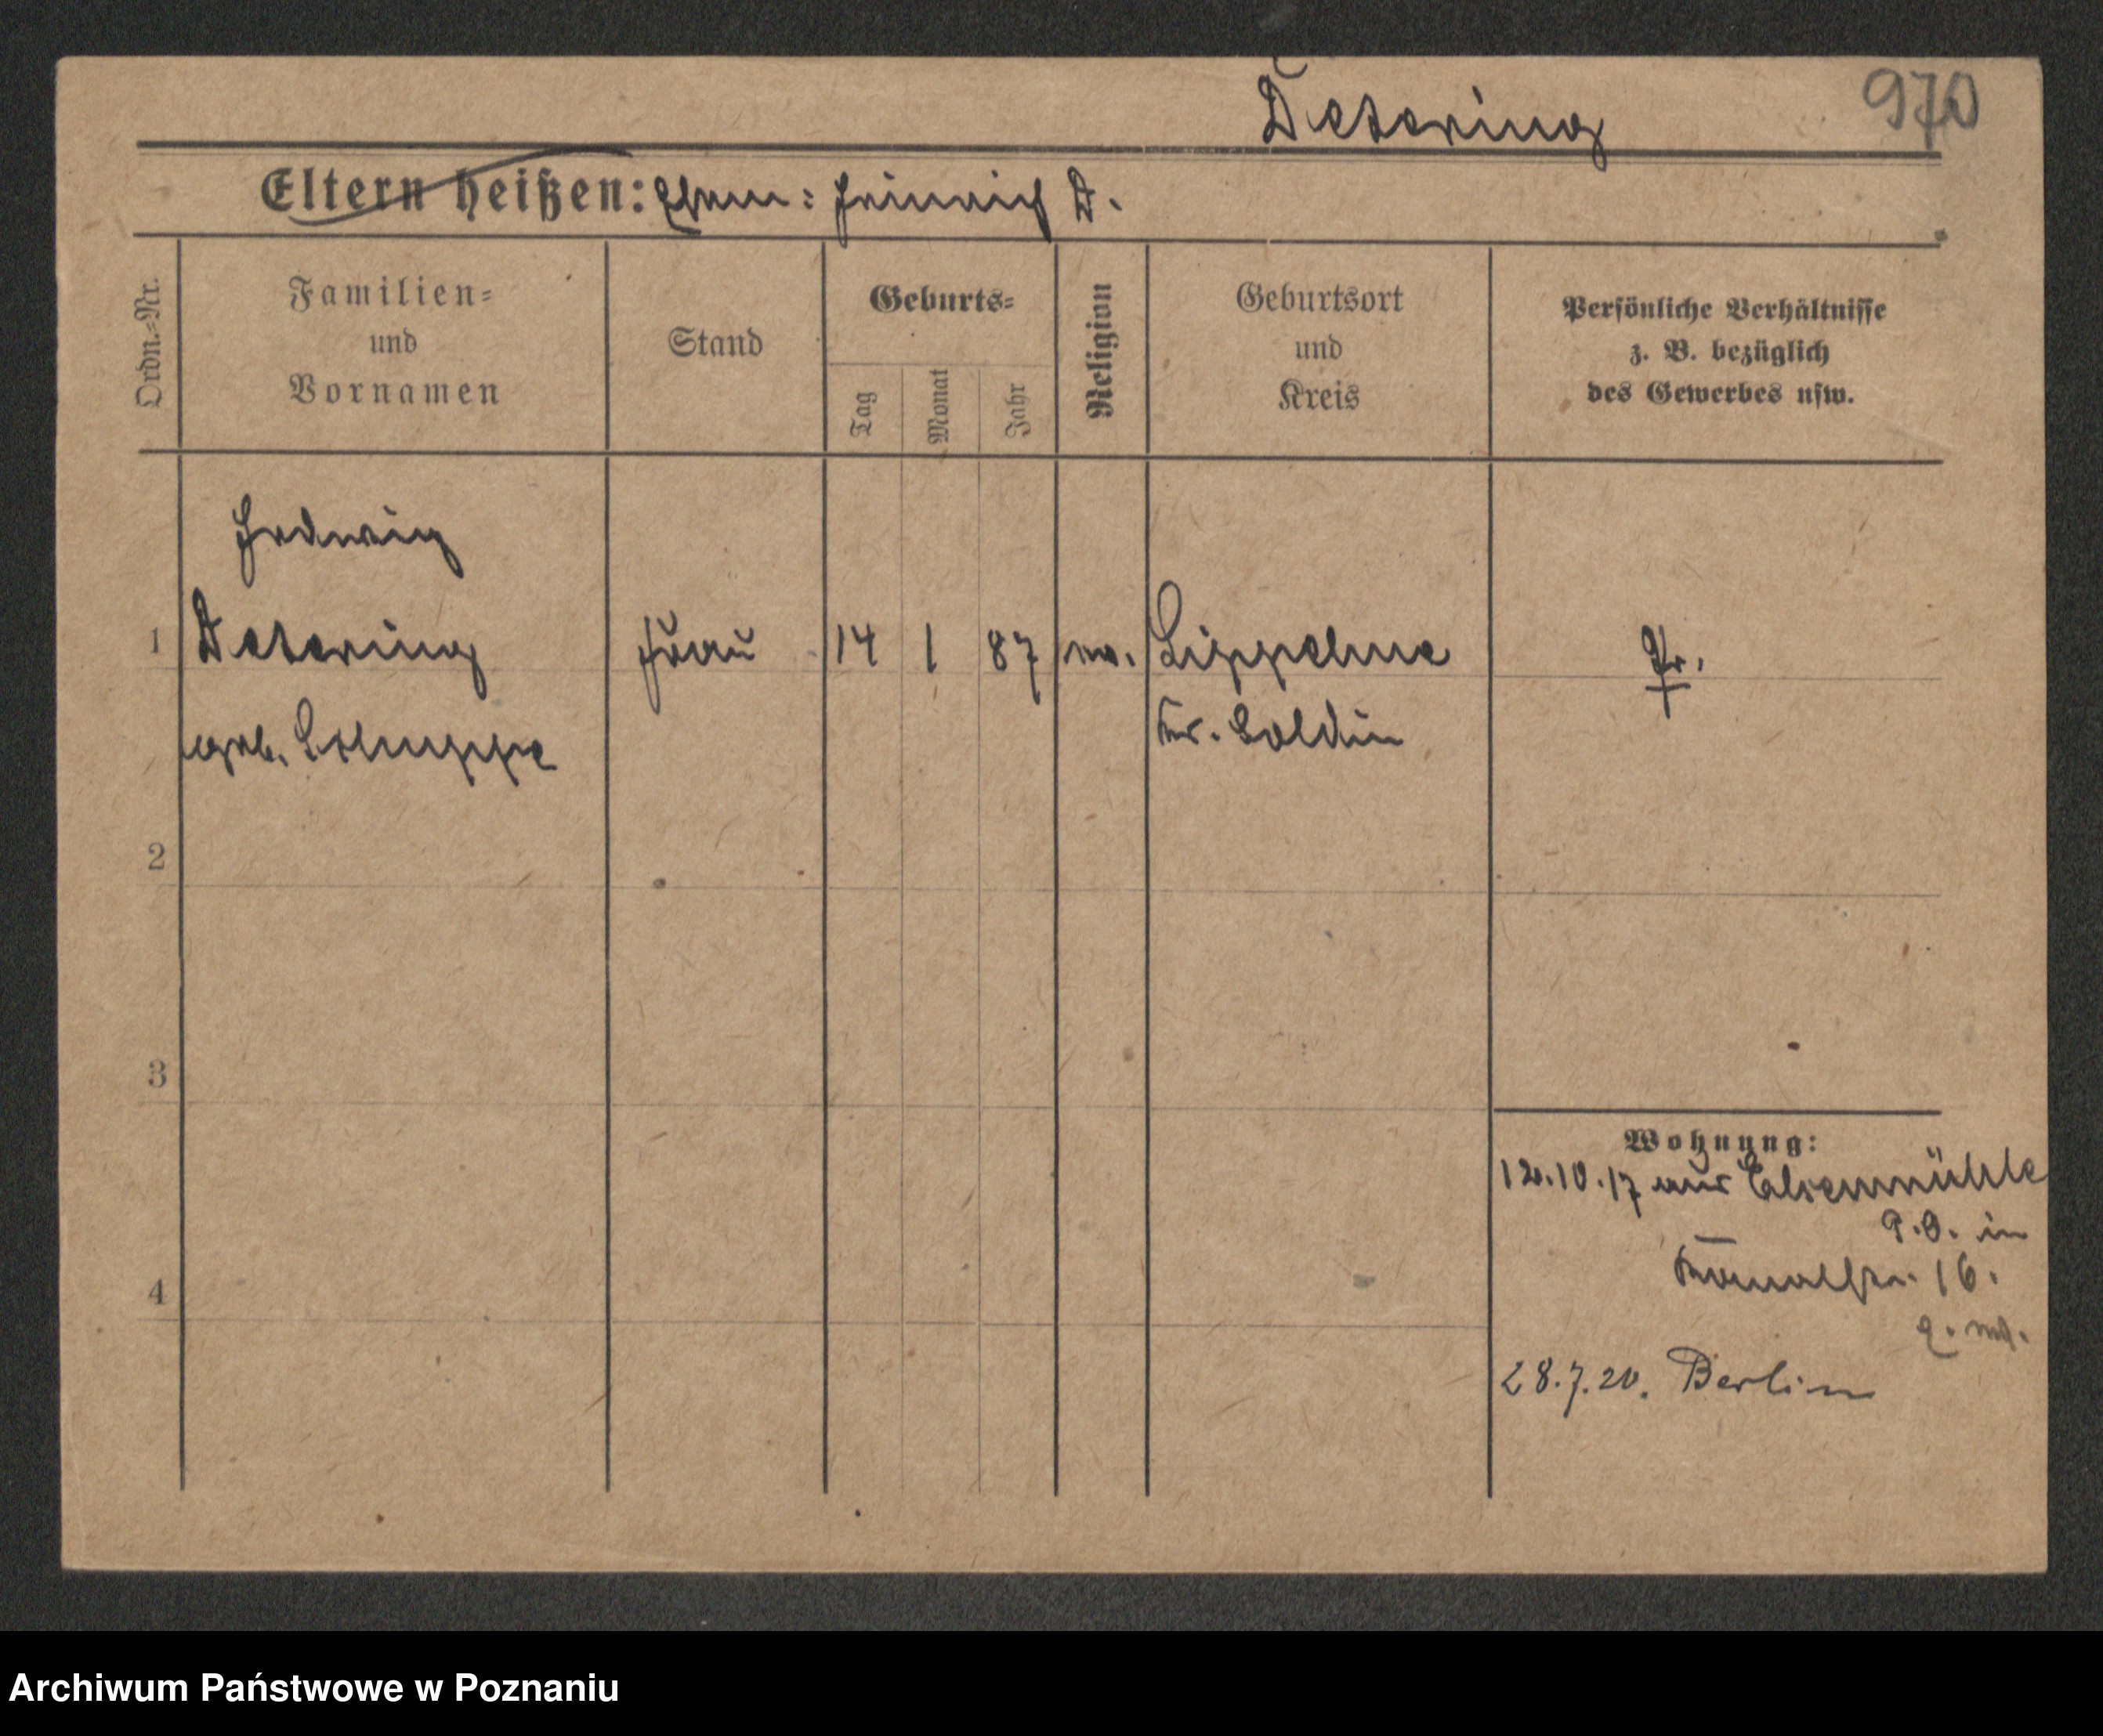 Detering
970
Eltern heißen: Ehem: Heinrich D.
Ordn.-Nr.
Familien-
und
Vornamen
Stand
Geburts-
Tag
Monat
Jahr
Religion
Geburtsort
und
Kreis
Persönliche Verhältnisse
z. B. bezüglich
des Gewerbes usw.
Hedwig
1 Detering Frau 14 1 87 ev. Lippehne Pr.
geb. Kr. Soldin
2
3
4
Wohnung:
12.10.17 aus Elsenmühle
P.O. in
16.
28.7.20. Berlin
Archiwum Państwowe w Poznaniu